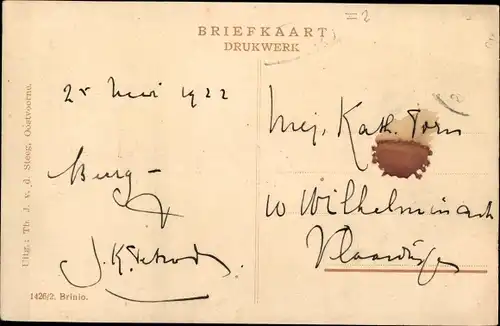 = 2
BRIEFKAART
DRUKWERK
Uitg.: Th. J. v. d. Steeg, Oostvoorne.
25 Mei 1922
Mej. Kath. Torn
W Wilhelminastr
Vlaardingen
1426/2. Brinio.